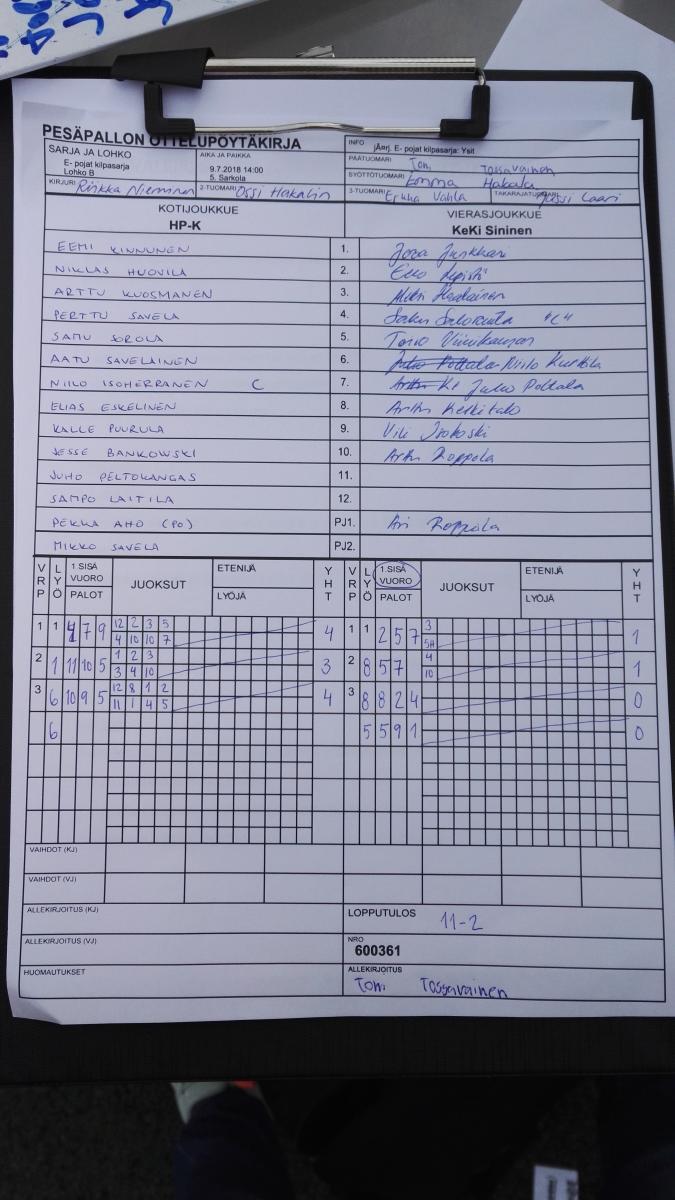 PESÄPALLON OTTELUPÖYTÄKIRJA
SARJA JA LOHKO
E- pojat kilpasarja
Lohko B
AIKA JA PAIKKA
9.7.2018 14:00
5. Sarkola
INFO
jÄrrj. E- pojat kilpasarja: Ysit
PÄÄTUOMARI Toni Tossavainen
SYÖTTÖTUOMARI Emma Hakala
KIRJURI Riikka Nieminen
2-TUOMARI Ossi Hakalin
3-TUOMARI Erkka Vahla
TAKARAJATUOMARI Jussi Laari
KOTIJOUKKUE
HP-K
VIERASJOUKKUE
KeKi Sininen
EEMI KINNUNEN 1. Joza Junkkari
NIKLAS HUOVILA 2. Eko
ARTTU KUOSMANEN 3.
PERTTU SAVELA 4. "C"
SAMU SOROLA 5. Toivo
AATU SAVELAINEN 6. Juho Pottala Niilo Kurttila
NIILO ISOHERRANEN C 7. Arttu Ke Juho Pottala
ELIAS ESKELINEN 8. Arttu Keskitalo
KALLE PUURULA 9. Vili Isokoski
JESSE BANKOWSKI 10. Arttu Roppola
JUHO PELTOKANGAS 11.
SAMPO LAITILA 12.
PEKKA AHO (PO) PJ1. Ari Roppola
MIKKO SAVELA PJ2.
VRP LYÖ 1.SISÄ VUORO PALOT JUOKSUT ETENIJÄ LYÖJÄ YHT VRP LYÖ 1.SISÄ VUORO PALOT JUOKSUT ETENIJÄ LYÖJÄ YHT
1 1 4 7 9 12 2 3 5 4 1 1 2 5 7 3 1
4 10 10 7 5H
2 1 11 10 5 1 2 3 3 2 8 5 7 4 1
3 4 10 10
3 6 10 9 5 12 8 1 2 4 3 8 8 2 4 0
11 1 4 5
6 5 5 9 1 0
VAIHDOT (KJ)
VAIHDOT (VJ)
ALLEKIRJOITUS (KJ)
LOPPUTULOS 11-2
ALLEKIRJOITUS (VJ)
NRO
600361
HUOMAUTUKSET
ALLEKIRJOITUS
Toni Tossavainen